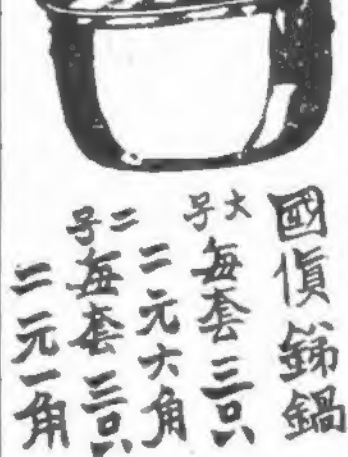 國貨銻鍋
大号每套三只
二元六角
二号每套三只
二元一角